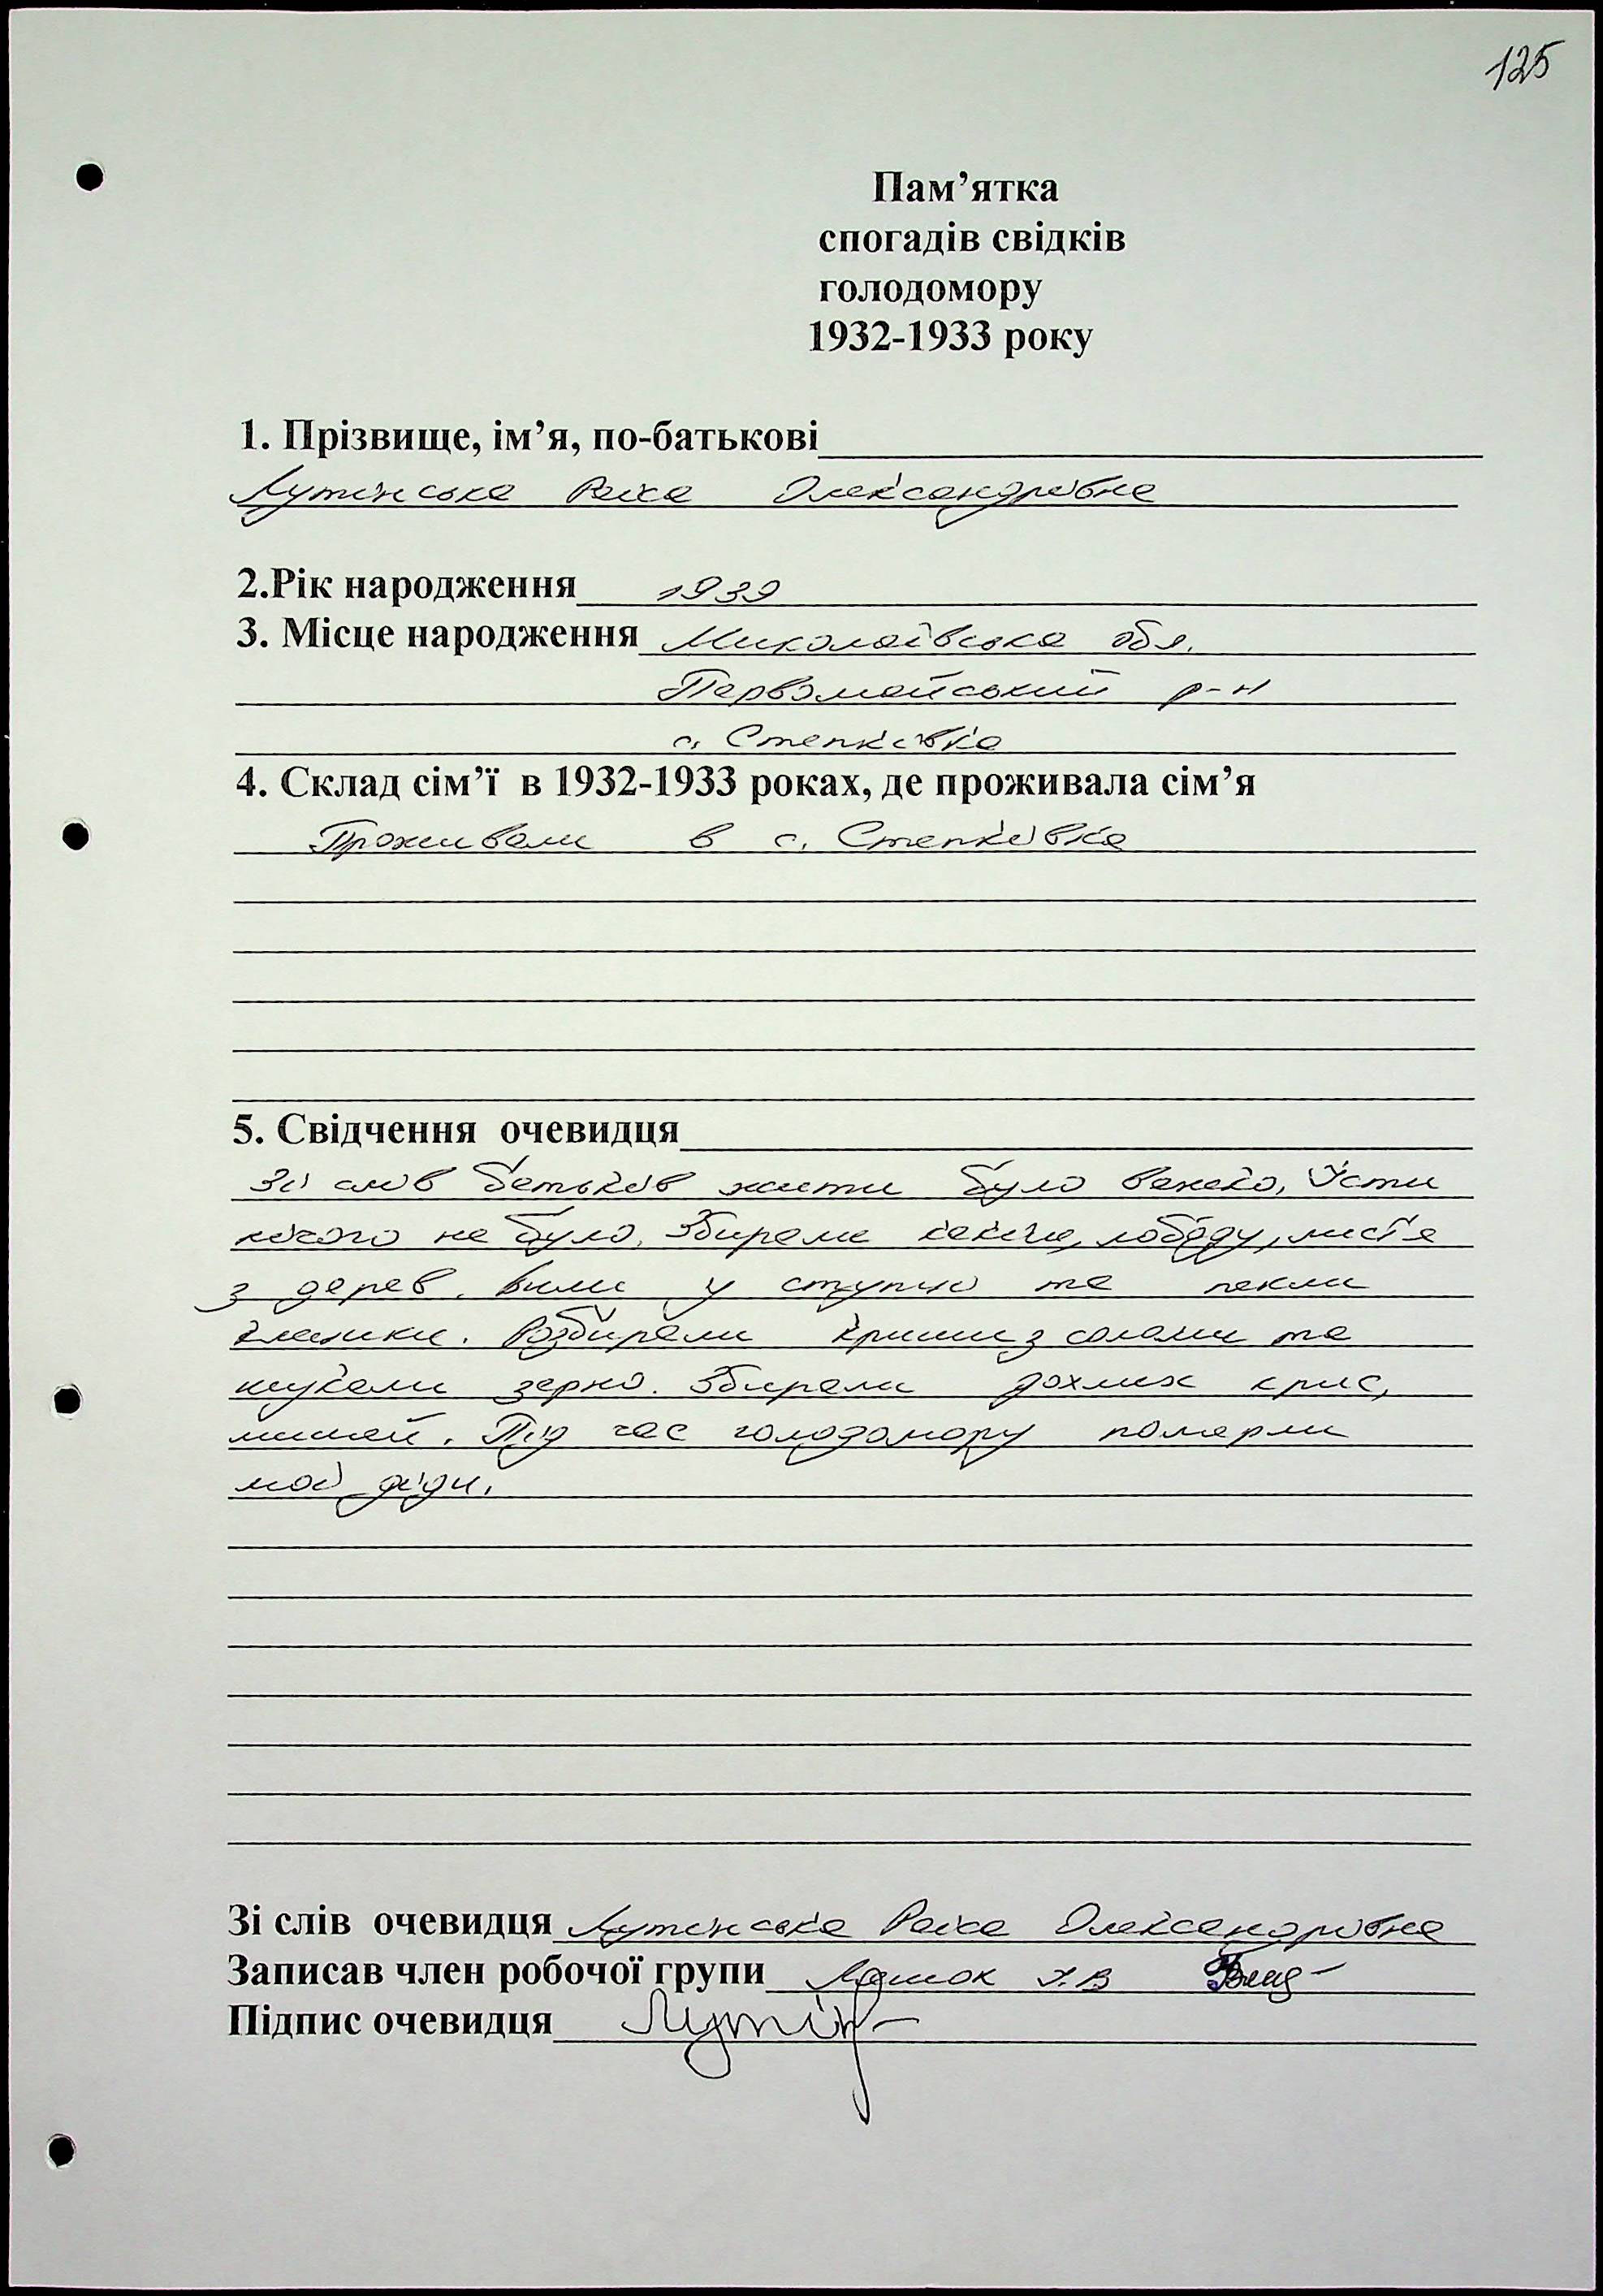 125
Пам’ятка
спогадів свідків
голодомору
1932-1933 року
1. Прізвище, ім’я, по-батькові
Лутінська Раїса Олександрівна
2.Рік народження 1939
3. Місце народження Миколаївська обл.
Первомайський р-н
с. Степківка
4. Склад сім’ї в 1932-1933 роках, де проживала сім’я
Проживали в с. Степківка
5. Свідчення очевидця
Зі слів батьків жити було важко, їсти
нічого не було. Збирали лободу, листя
з дерев. Били у ступці та пекли
Розбирали криші з соломи та
шукали зерно. Збирали дохлих крис,
мишей. Під час голодомору померли
мої діди.
Зі слів очевидця Лутінська Раїса Олександрівна
Записав член робочої групи
Підпис очевидця